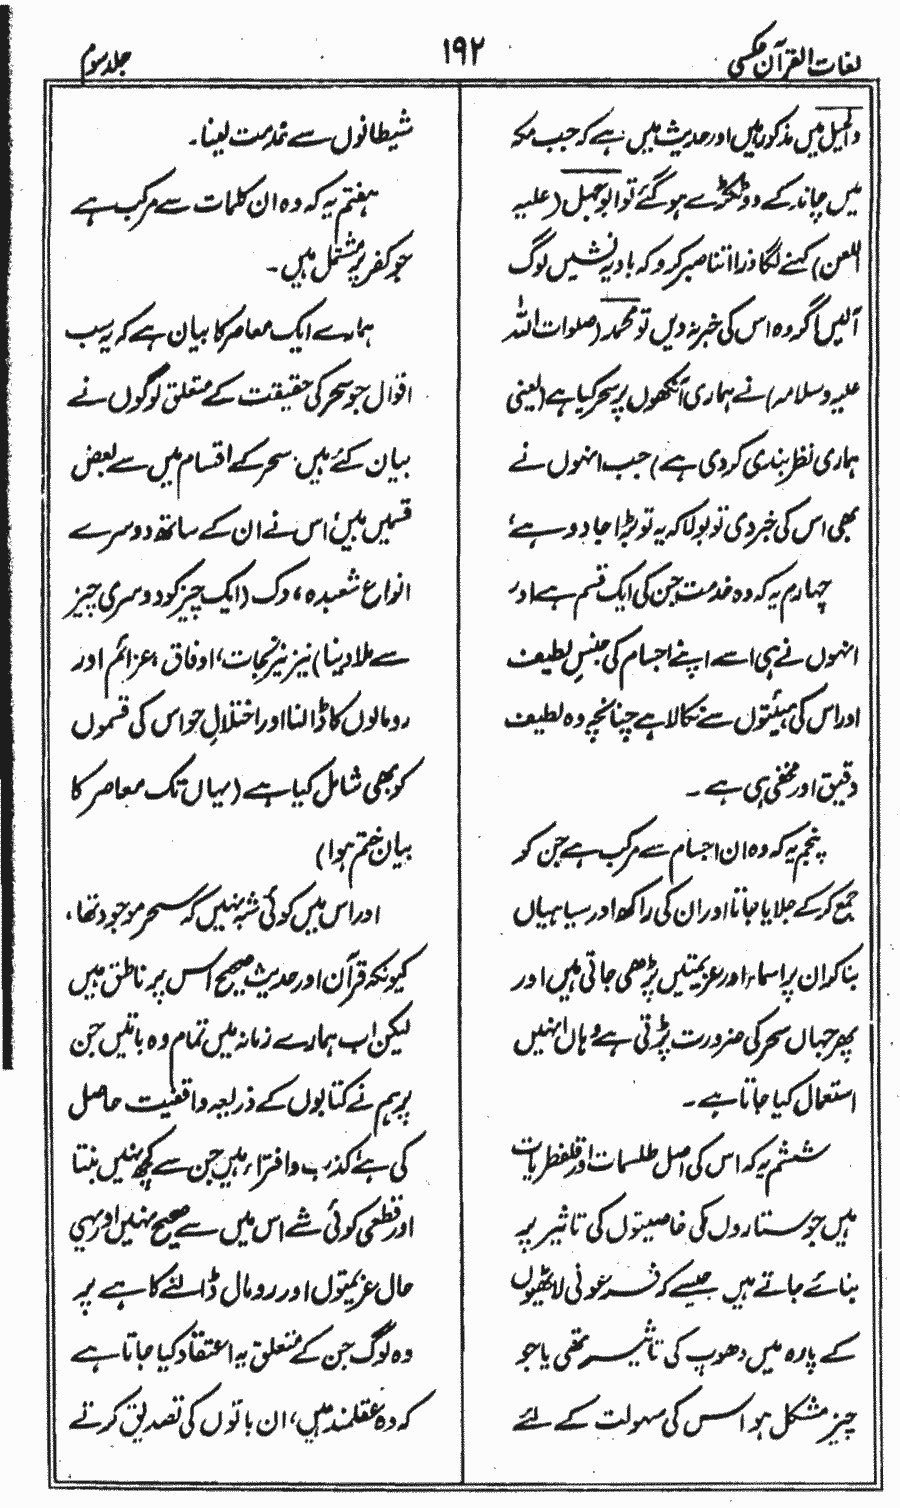 لغات القرآن عکسی
۱۹۲
جلد سوم
دخیل میں مذکور ہیں اور حدیث میں ہے کہ جب مکہ
میں چاند کے دو ٹکڑے ہو گئے تو ابو جہل (علیہ
اللعن) کہنے لگا ذرا اتنا صبر کرو کہ بادیہ نشیں لوگ
آلیں اگر وہ اس کی خبر نہ دیں تو محمد (صلوات اللہ
علیہ وسلامہ) نے ہماری آنکھوں پر سحر کیا ہے (یعنی
ہماری نظر بندی کر دی ہے) جب انہوں نے
بھی اس کی خبر دی تو بولا کہ یہ تو بڑا جادو ہے،
چہارم یہ کہ وہ خدمت جن کی ایک قسم ہے اور
انہوں نے ہی اسے اپنے اجسام کی جنسِ لطیف
اور اس کی ہیئتوں سے نکالا ہے چنانچہ وہ لطیف
دقیق اور مخفی ہی ہے۔
پنجم یہ کہ وہ ان اجسام سے مرکب ہے جن کو
جمع کر کے جلایا جاتا اور ان کی راکھ اور سیاہیاں
بنا کر ان پر اسماء اور عزیمتیں پڑھی جاتی ہیں اور
پھر جہاں سحر کی ضرورت پڑتی ہے وہاں انہیں
استعمال کیا جاتا ہے۔
ششم یہ کہ اس کی اصل طلسمات اور قلفطریات
ہیں جو ستاروں کی خاصیتوں کی تاثیر پر
بنائے جاتے ہیں جیسے کہ فرعونی لاٹھیوں
کے پارہ میں دھوپ کی تاثیر تھی یا جو
چیز مشکل ہو اس کی سہولت کے لئے
شیطانوں سے خدمت لینا۔
ہفتم یہ کہ وہ ان کلمات سے مرکب ہے
جو کفر پر مشتمل ہیں۔
ہمارے ایک معاصر کا بیان ہے کہ یہ سب
اقوال جو سحر کی حقیقت کے متعلق لوگوں نے
بیان کئے ہیں، سحر کے اقسام میں سے بعض
قسمیں ہیں، اس نے ان کے ساتھ دوسرے
انواع شعبدہ، دک (ایک چیز کو دوسری چیز
سے ملا دینا) نیز نیرنجات، اوفاق، عزائم اور
رومالوں کا ڈالنا اور اختلالِ حواس کی قسموں
کو بھی شامل کیا ہے (یہاں تک معاصر کا
بیان ختم ہوا)
اور اس میں کوئی شبہ نہیں کہ سحر موجود تھا،
کیونکہ قرآن اور حدیث صحیح اس پر ناطق ہیں
لیکن اب ہمارے زمانہ میں تمام وہ باتیں جن
پر ہم نے کتابوں کے ذریعہ واقفیت حاصل
کی ہے، کذب و افتراء ہیں جن سے کچھ نہیں بنتا
اور قطعی کوئی شے اس میں سے صحیح نہیں اور یہی
حال عزیمتوں اور رومال ڈالنے کا ہے پر
وہ لوگ جن کے متعلق یہ اعتقاد کیا جاتا ہے
کہ وہ عقلمند ہیں، ان باتوں کی تصدیق کرتے